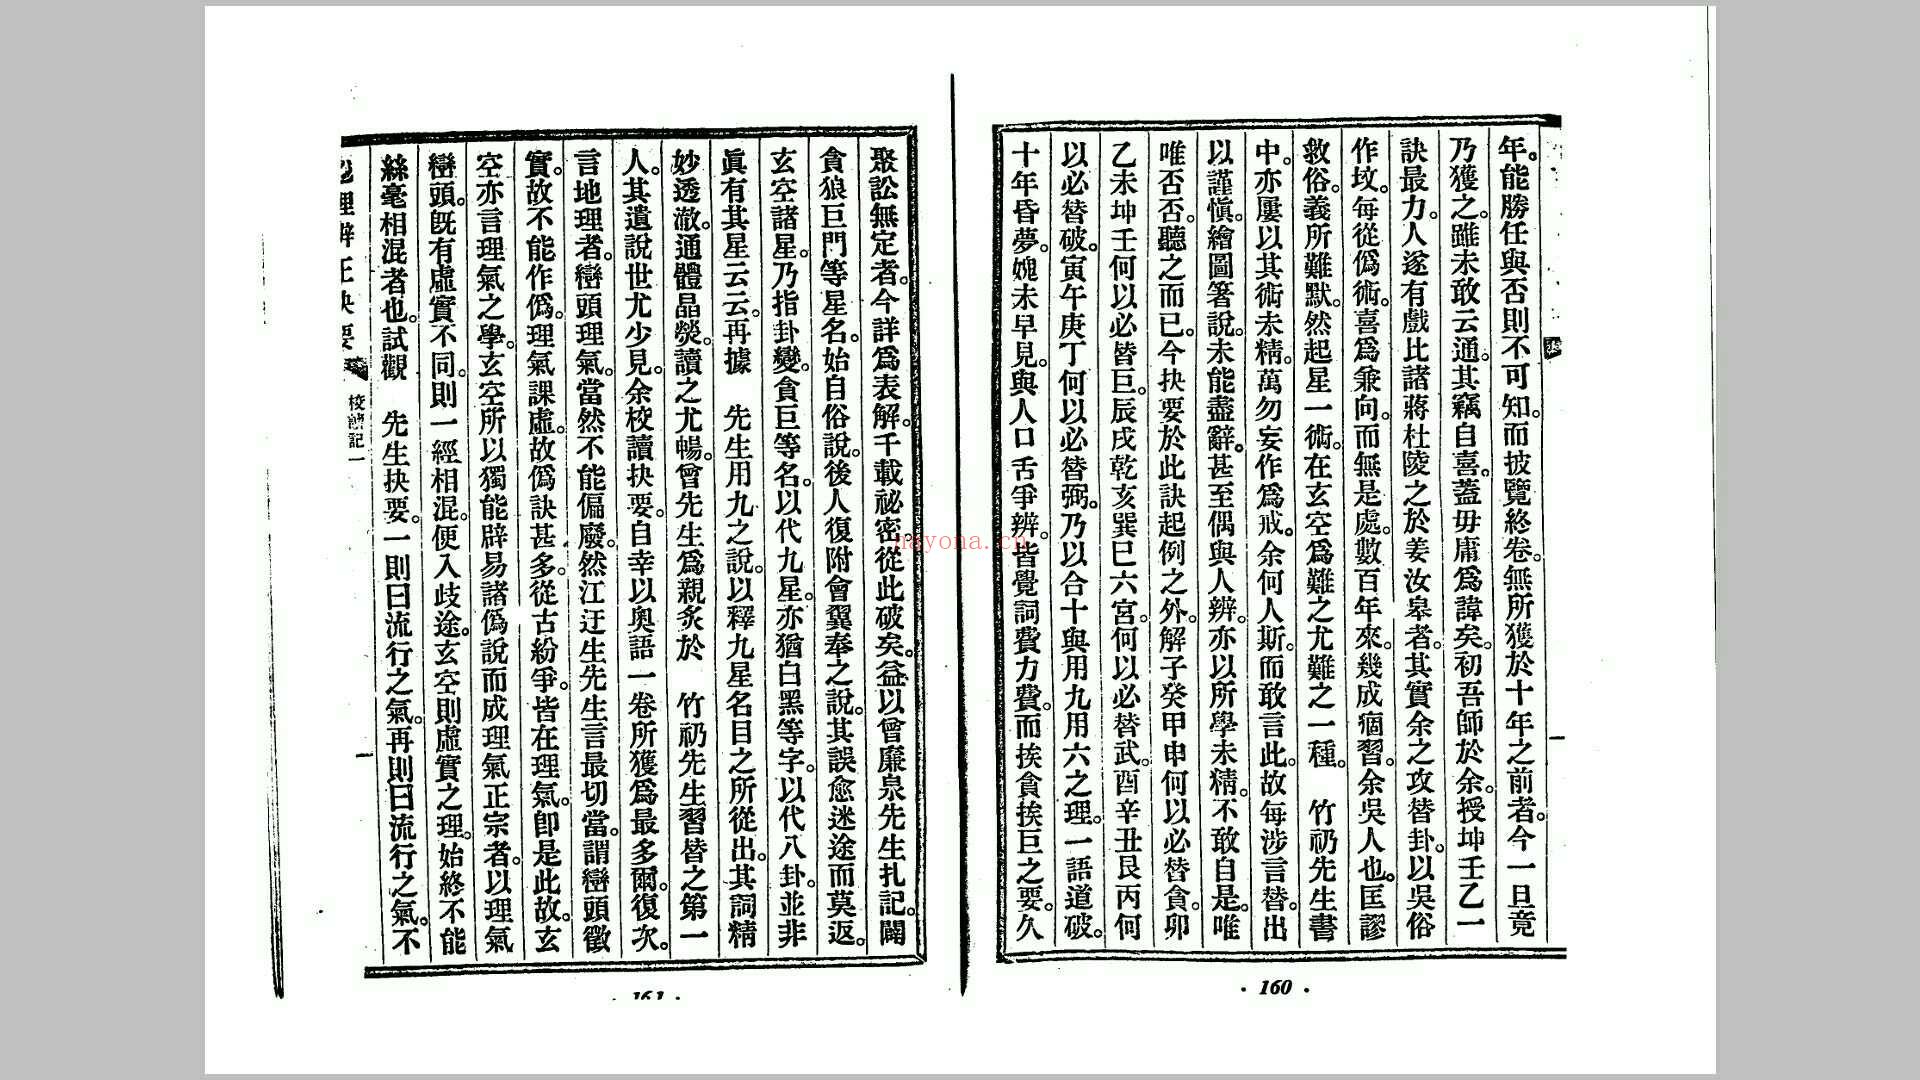 年。能勝任與否則不可知。而披覽終卷。無所獲於十年之前者。今一旦竟
乃獲之。雖未敢云通。其竊自喜。蓋毋庸爲諱矣。初吾師於余。授坤壬乙一
訣最力。人遂有戲比諸蔣杜陵之於姜汝皋者。其實余之攻替卦。以吳俗
作坟。每從僞術。喜爲兼向。而無是處。數百年來。幾成痼習。余吳人也。匡謬
救俗。義所難默。然起星一術。在玄空爲難之尤難之一種。　竹礽先生書
中。亦屢以其術未精。萬勿妄作爲戒。余何人斯。而敢言此。故每涉言替。出
以謹愼。繪圖箸說。未能盡辭。甚至偶與人辨。亦以所學未精。不敢自是。唯
唯否否。聽之而已。今抉要於此訣起例之外。解子癸甲申何以必替貪。卯
乙未坤壬何以必替巨。辰戌乾亥巽巳六宮。何以必替武。酉辛丑艮丙何
以必替破。寅午庚丁何以必替弼。乃以合十與用九用六之理。一語道破。
十年昏夢。媿未早見。與人口舌爭辨。皆覺詞費力費。而挨貪挨巨之要。久
· 160 ·
聚訟無定者。今詳爲表解。千載祕密。從此破矣。益以曾廉泉先生扎記。闢
貪狼巨門等星名。始自俗說。後人復附會翼奉之說。其誤愈迷途而莫返。
玄空諸星。乃指卦變。貪巨等名。以代九星。亦猶白黑等字。以代八卦。並非
眞有其星云云。再據　先生用九之說。以釋九星名目之所從出。其詞精
妙透澈。通體晶熒。讀之尤暢。曾先生爲親炙於　竹礽先生習替之第一
人。其遺說世尤少見。余校讀抉要。自幸以奧語一卷所獲爲最多爾。復次。
言地理者。巒頭理氣。當然不能偏廢。然江迂生先生言最切當。謂巒頭徵
實。故不能作僞。理氣課虛。故僞訣甚多。從古紛爭。皆在理氣。卽是此故。玄
空亦言理氣之學。玄空所以獨能辟易諸僞說而成理氣正宗者。以理氣
巒頭。旣有虛實不同。則一經相混。便入歧途。玄空則虛實之理。始終不能
絲毫相混者也。試觀　先生抉要。一則曰流行之氣。再則曰流行之氣。不
地理辨正抉要
校讀記一
一
· 161 ·
nayona.cn